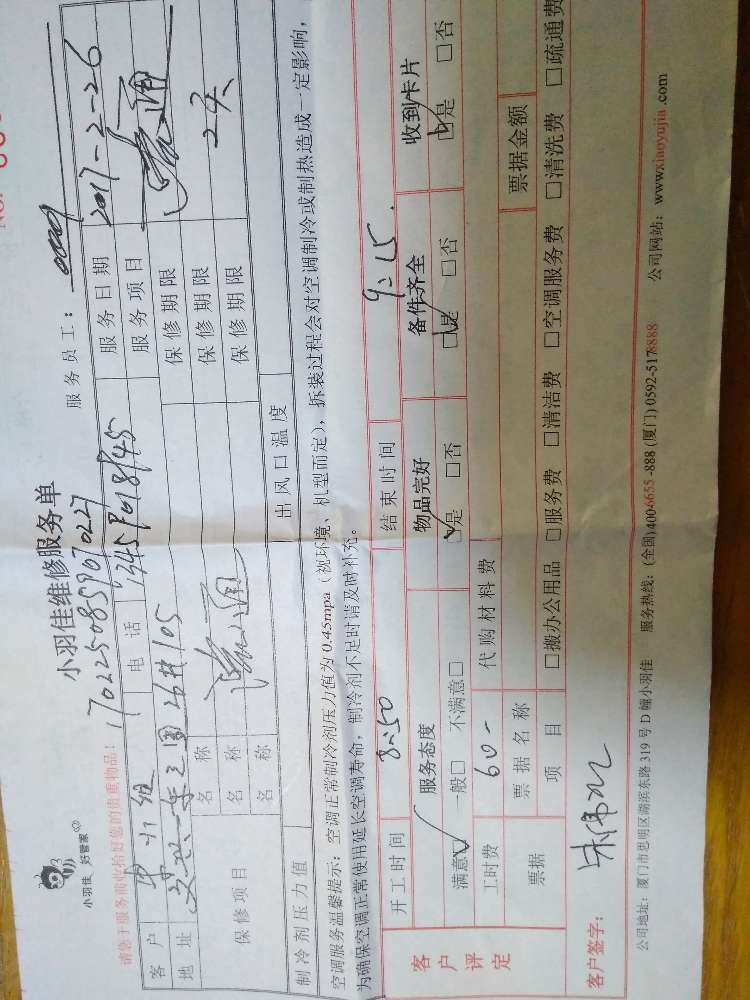 小羽佳 好管家
小羽佳维修服务单
服务员工：
170225085907027
请您于服务前收拾好您的贵重物品！
客户 电话 服务日期 2017-2-26
地址 105 服务项目 疏通
保修项目 名称 疏通 保修期限
名称 保修期限 2天
名称 保修期限
制冷剂压力值 出风口温度
空调服务温馨提示：空调正常制冷剂压力值为0.45mpa（视环境、机型而定），拆装过程会对空调制冷或制热造成一定影响，
为确保空调正常使用延长空调寿命，制冷剂不足时请及时补充。
开工时间 8:50 结束时间 9:15
客户评定 服务态度 物品完好 备件齐全 收到卡片
满意☑ 一般□ 不满意□ ☑是 □否 ☑是 □否 ☑是 □否
工时费 60- 代购材料费
票据 票据名称 票据金额
项目 □搬办公用品 □服务费 □清洁费 □空调服务费 □清洗费 □疏通费
客户签字：
公司地址：厦门市思明区湖滨东路319号D幢小羽佳 服务热线：(全国)4006655-888 (厦门) 0592-5178888 公司网站：www.xiaoyujia.com